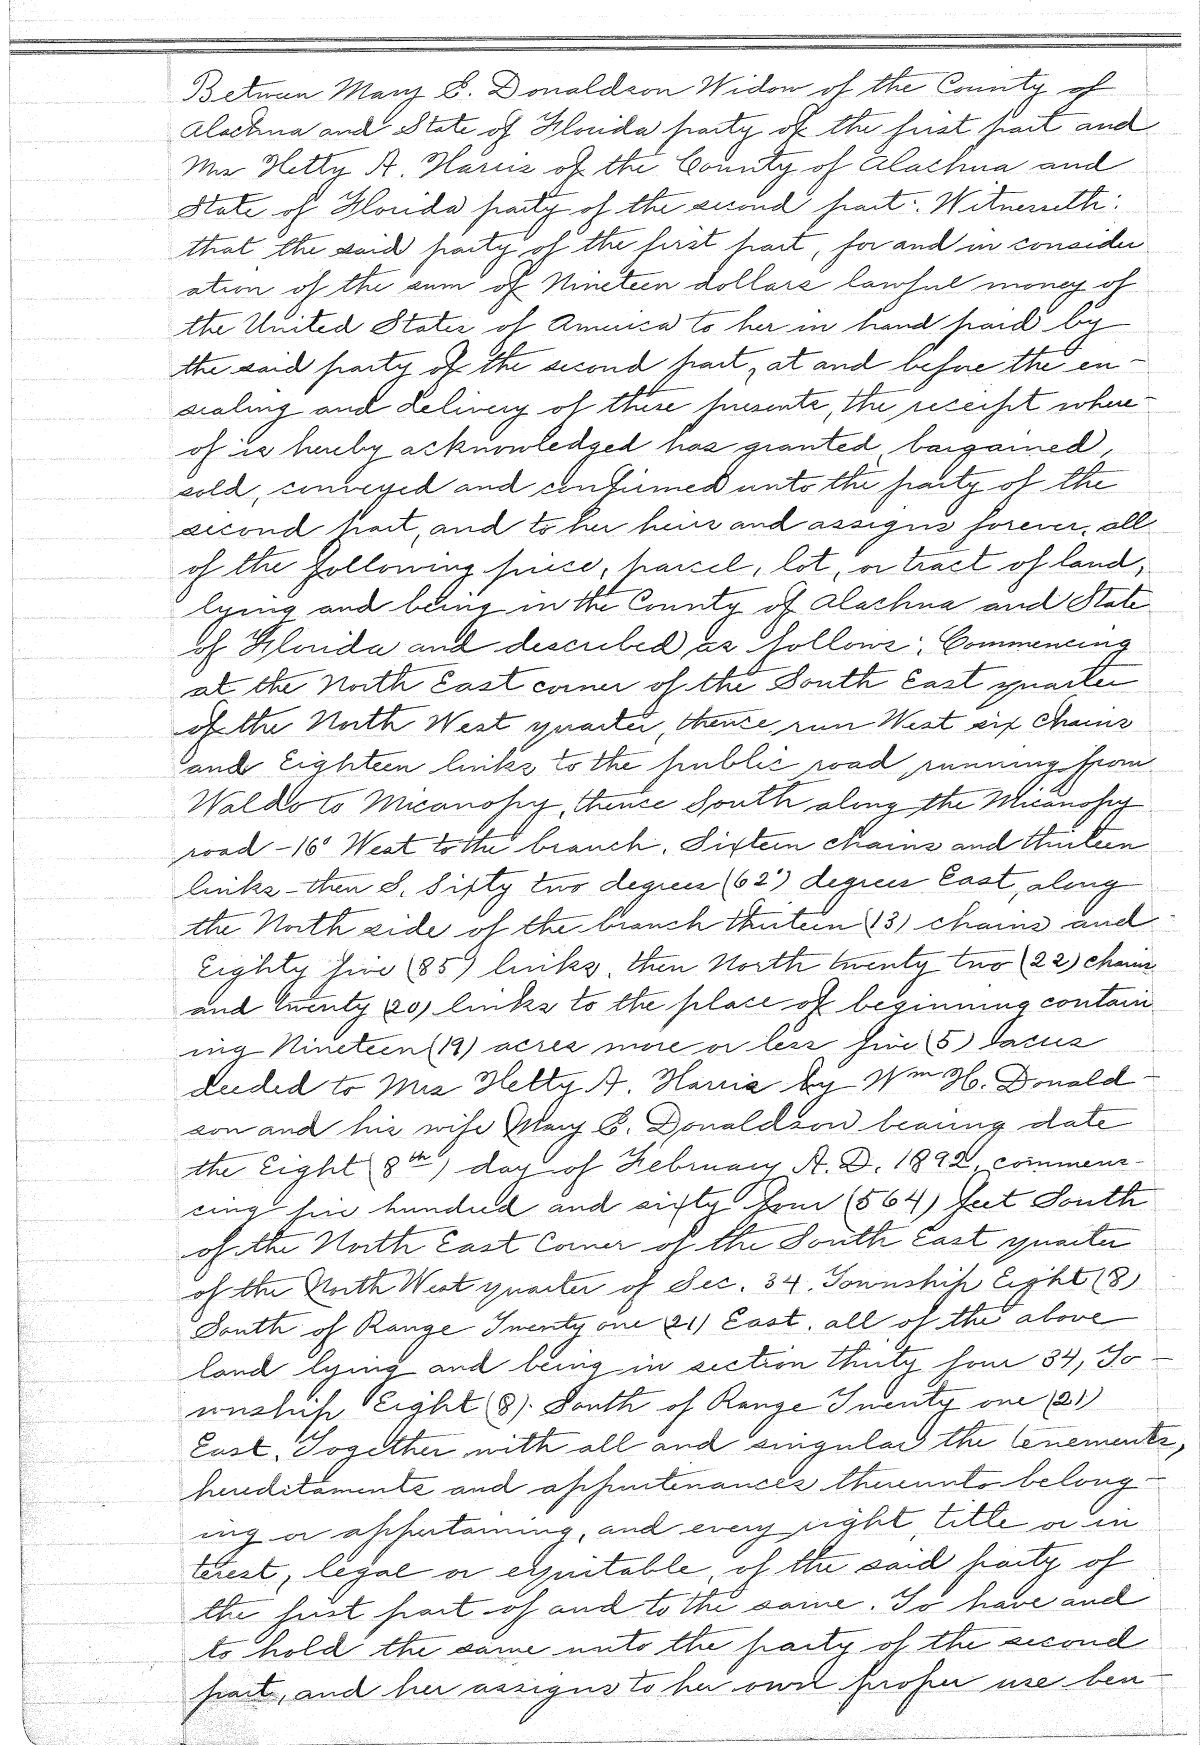 Between Mary E. Donaldson Widow of the County of
Alachua and State of Florida party of the first part and
Mrs Hetty A. Harris of the County of Alachua and
State of Florida party of the second part: Witnesseth:
that the said party of the first part, for and in consider
ation of the sum of Nineteen dollars lawful money of
the United States of America to her in hand paid by
the said party of the second part, at and before the en-
sealing and delivery of these presents, the receipt where-
of is hereby acknowledged has granted, bargained,
sold, conveyed and confirmed unto the party of the
second part, and to her heirs and assigns forever, all
of the following piece, parcel, lot, or tract of land,
lying and being in the County of Alachua and State
of Florida and described as follows: Commencing
at the North East corner of the South East quarter
of the North West quarter, thence run West six chains
and Eighteen links to the public road running from
Waldo to Micanopy, thence South along the Micanopy
road - 16° West to the branch. Sixteen chains and thirteen
links - then S. Sixty two degrees (62°) degrees East, along
the North side of the branch thirteen (13) chains and
Eighty five (85) links, then North twenty two (22) chains
and twenty (20) links to the place of beginning contain
ing Nineteen (19) acres more or less five (5) acres
deeded to Mrs Hetty A. Harris by Wm H. Donald-
son and his wife Mary E. Donaldson bearing date
the Eight (8th) day of February A. D. 1892, commen-
cing five hundred and sixty four (564) feet South
of the North East Corner of the South East quarter
of the North West quarter of Sec. 34. Township Eight (8)
South of Range Twenty one (21) East. all of the above
land lying and being in section thirty four 34, To-
wnship Eight (8) South of Range Twenty one (21)
East. Together with all and singular the tenements,
hereditaments and appurtenances thereunto belong-
ing or appertaining, and every right, title or in
terest, legal or equitable, of the said party of
the first part of and to the same. To have and
to hold the same unto the party of the second
part, and her assigns to her own proper use ben-